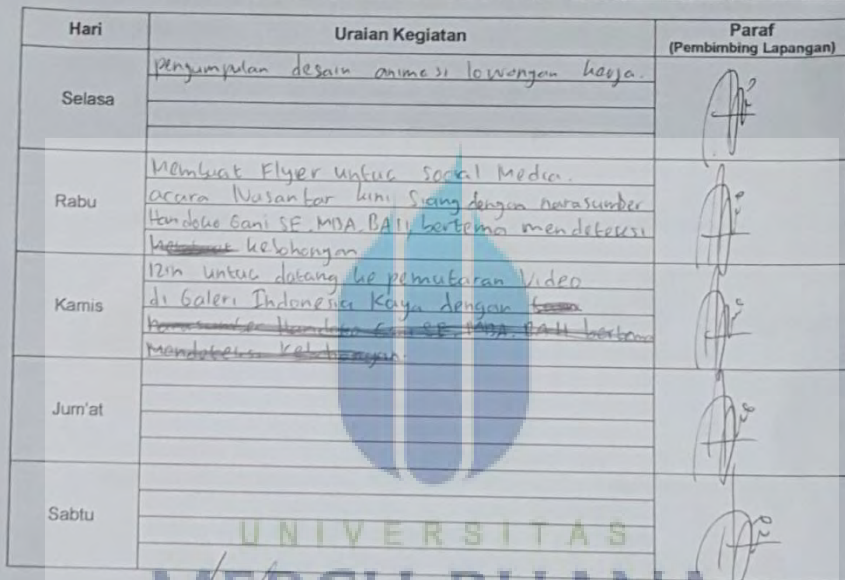 Hari Uraian Kegiatan Paraf
(Pembimbing Lapangan)
Selasa
pengumpulan desain animasi lowongan kerja.
Rabu
Membuat Flyer untuc Social Media.
acara Nusantar kini Siang dengan narasumber
Handoko Gani SE, MBA, BAII, bertema mendeteksi
kebohongan
Kamis
Izin untuc datang ke pemutaran Video
di Galeri Indonesia Kaya dengan
narasumber Handoko Gani SE, MBA, BAII bertema
Mendeteksi kebohongan.
Jum'at
Sabtu
UNIVERSITAS
MERCU BUANA